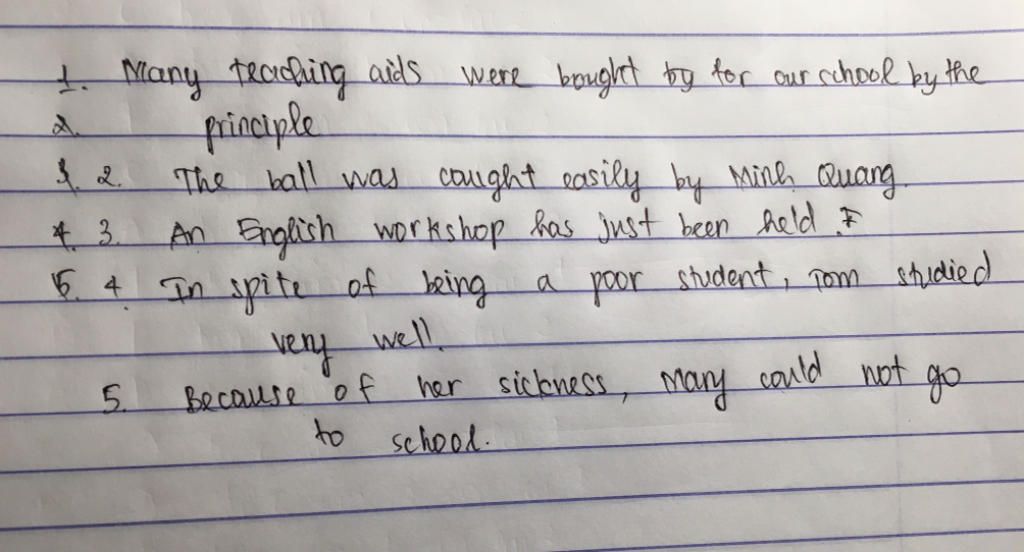 1. Many teaching aids were bought by for our school by the
2. principle
3. 2. The ball was caught easily by Minh Quang.
4. 3. An English workshop has just been held.
5. 4. In spite of being a poor student, Tom studied
very well.
5. Because of her sickness, Mary could not go
to school.